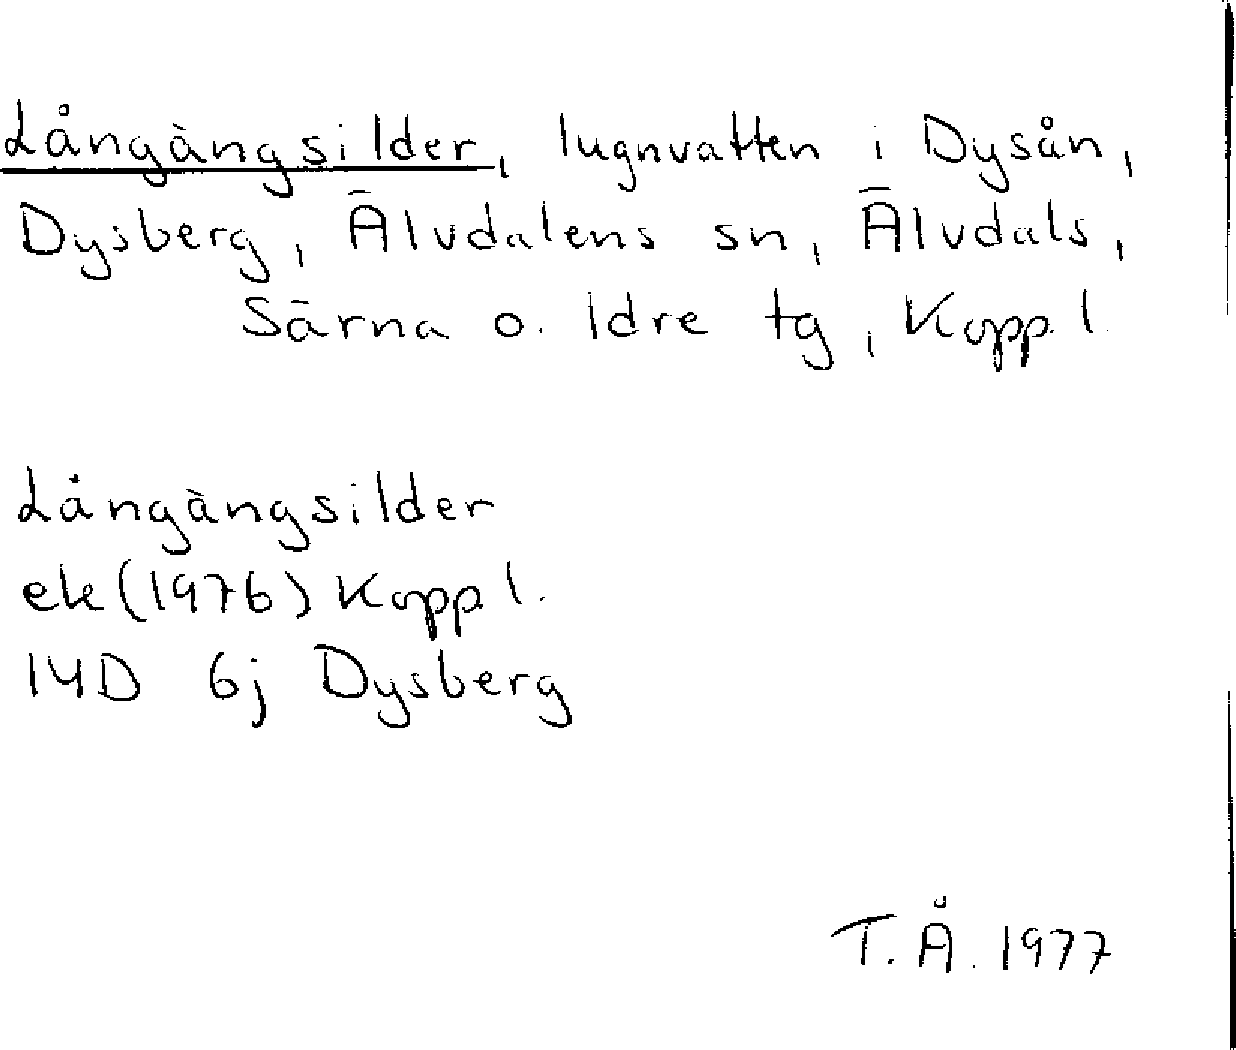 Långàngsilder, lugnvatten i Dysån,
Dysberg, Älvdalens sn, Älvdals,
Särna o. Idre tg, Kopp.l.
Långàngsilder
ek (1976) Kopp.l.
14D 6j Dysberg
T.Å. 1977